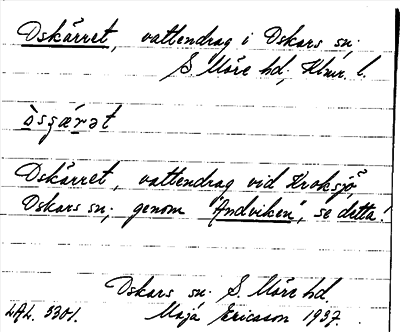 Oskärret, vattendrag i Oskars sn,
S Möre hd, Klmr. l.
òsʒæ̀rət
Oskärret, vattendrag vid Kroksjö,
Oskars sn; genom "Andviken", se detta!
Oskars sn. S. Möre hd.
LAL. 3301. Maja Ericsson 1937.